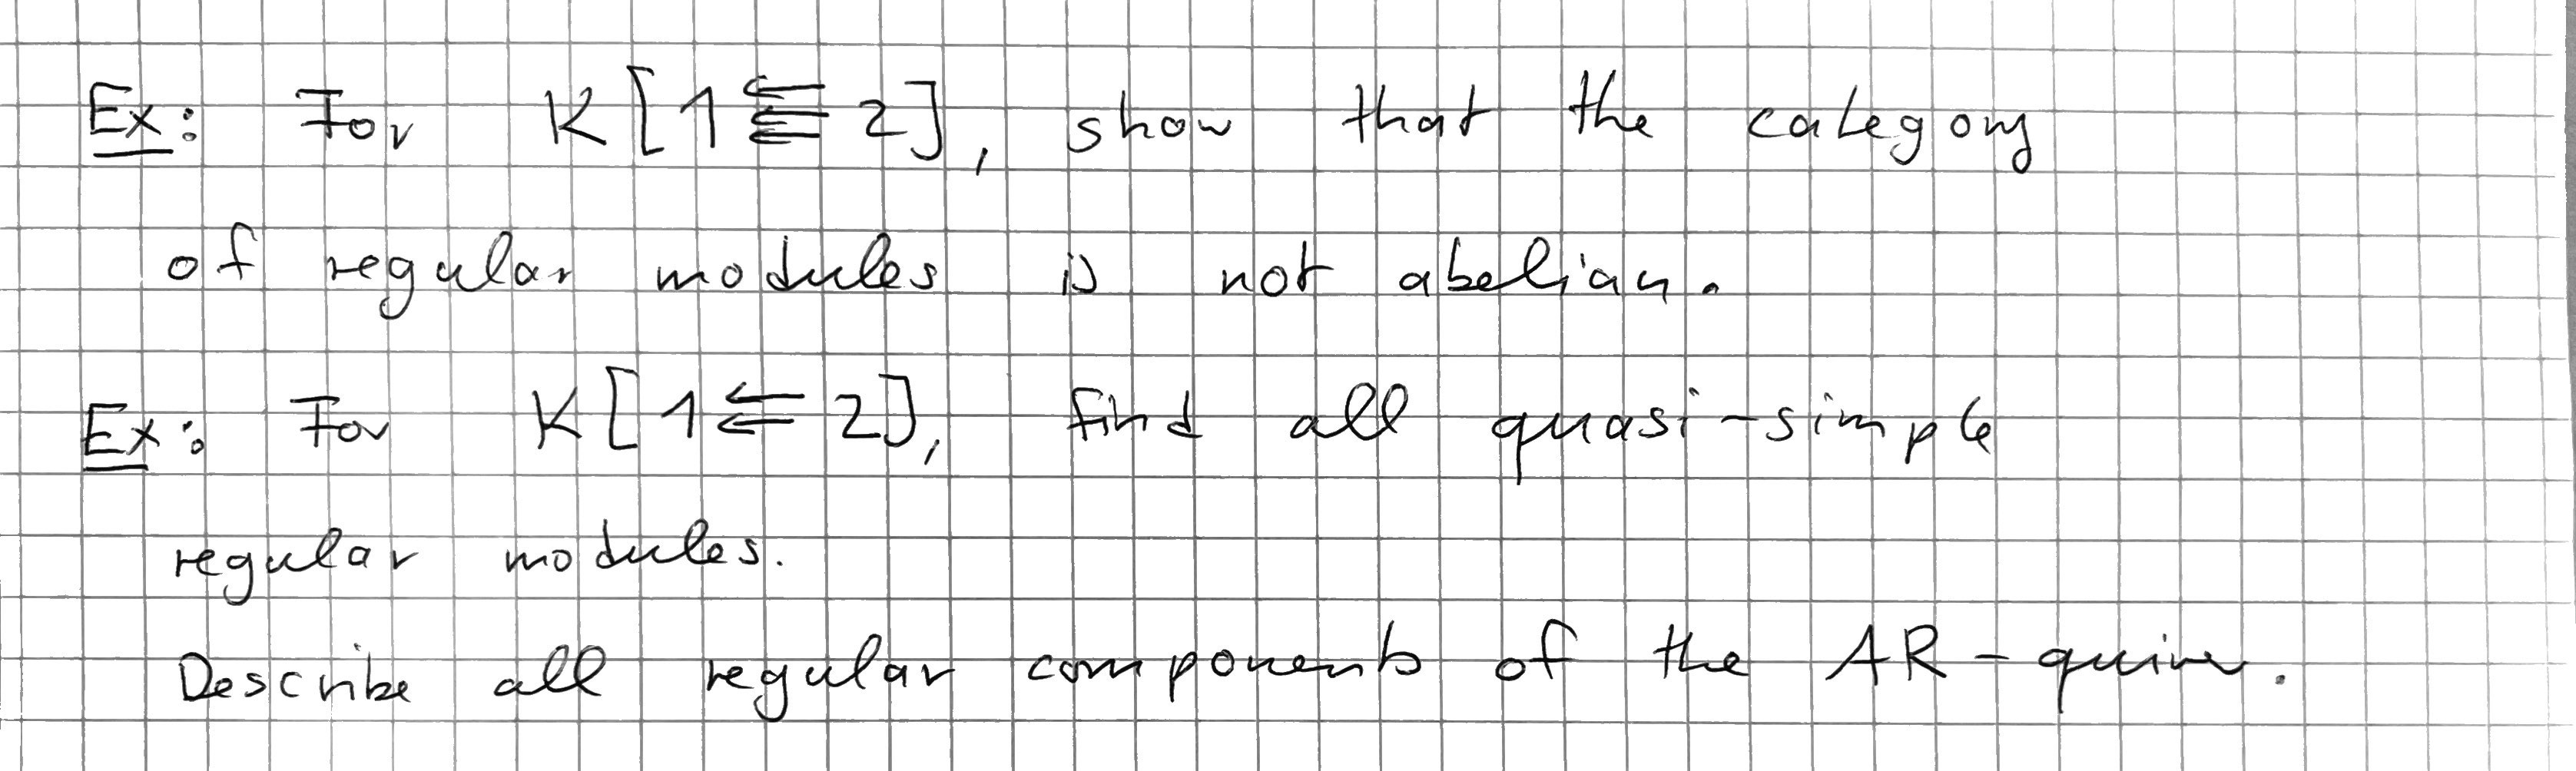 Ex: For K[1 ⬱ 2], show that the category
of regular modules is not abelian.
Ex: For K[1 ⇇ 2], find all quasi-simple
regular modules.
Describe all regular components of the AR-quiver.